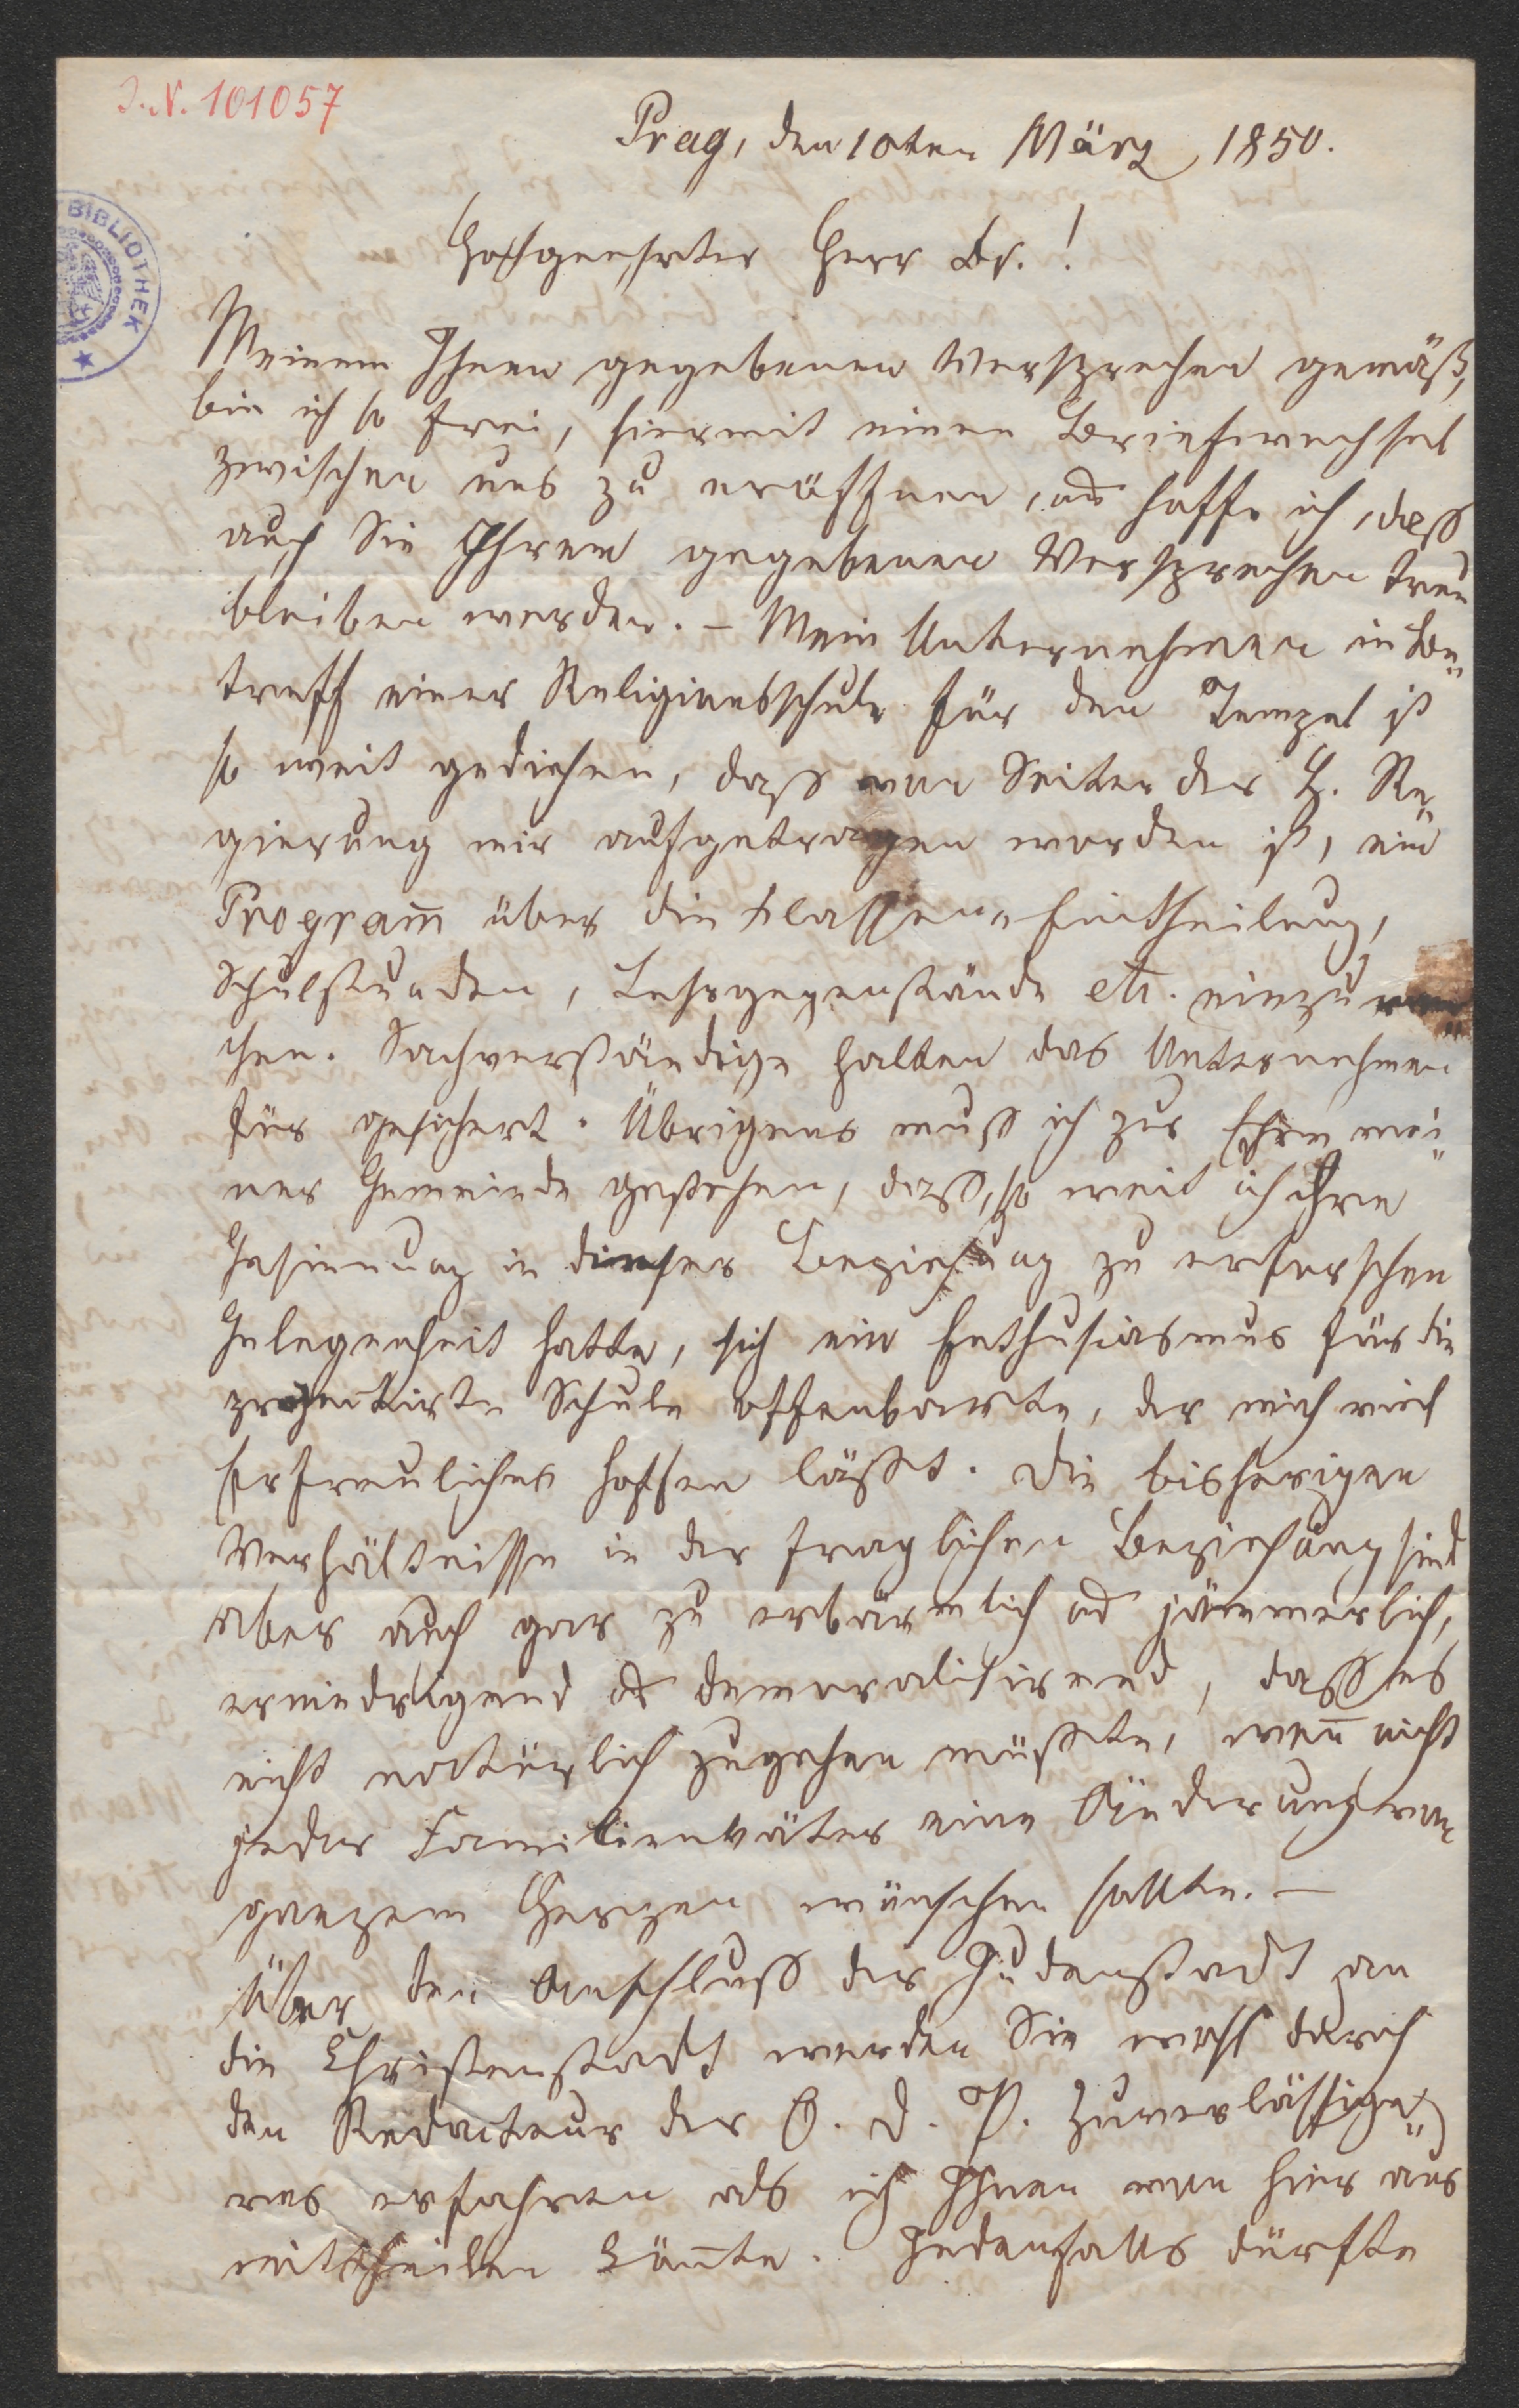 I. N. 101057
BIBLIOTHEK
Prag, den 10ten März 1850.
Hochgeehrter Herr Dr.!
Meinem Ihnen gegebenen Versprechen gemäß,
bin ich so frei, hiermit einen Briefwechsel
zwischen uns zu eröffnen, und hoffe ich, daß
auch Sie Ihrem gegebenen Versprechen treu
bleiben werden. – Mein Unternehmen in Be„
treff einer Religionsschule für den Tempel ist
so weit gediehen, daß von Seiten der h. Re„
gierung mir aufgetragen worden ist, ein
Program̅ über die Klassen„Eintheilung,
Schulstunden, Lehrgegenstände etc. einzurei„
chen. Sachverständige halten das Unternehmen
für gesichert. Übrigens muß ich zur Ehre mei„
ner Gemeinde gestehen, daß, so weit ich ihre
Gesinnung in dieser Beziehung zu erforschen
Gelegenheit hatte, sich ein Enthusiasmus für die
projectirte Schule offenbarte, der mich viel
Erfreuliches hoffen läßt. Die bisherigen
Verhältnisse in der fraglichen Beziehung sind
aber auch gar zu erbärmlich und jämmerlich,
erniedrigend und demoralisirend, daß es
nicht natürlich zugehen müßte, wen̅ nicht
jeder Familienväter eine Änderung von
ganzem Herzen wünschen sollte. –
Über den Anschluß der Judenstadt an
die Christenstadt werden Sie wohl durch
den Redacteur der O. D. P. Zuverlässige„
res erfahren als ich Ihnen von hier aus
mittheilen kön̅te. Jedenfalls dürfte